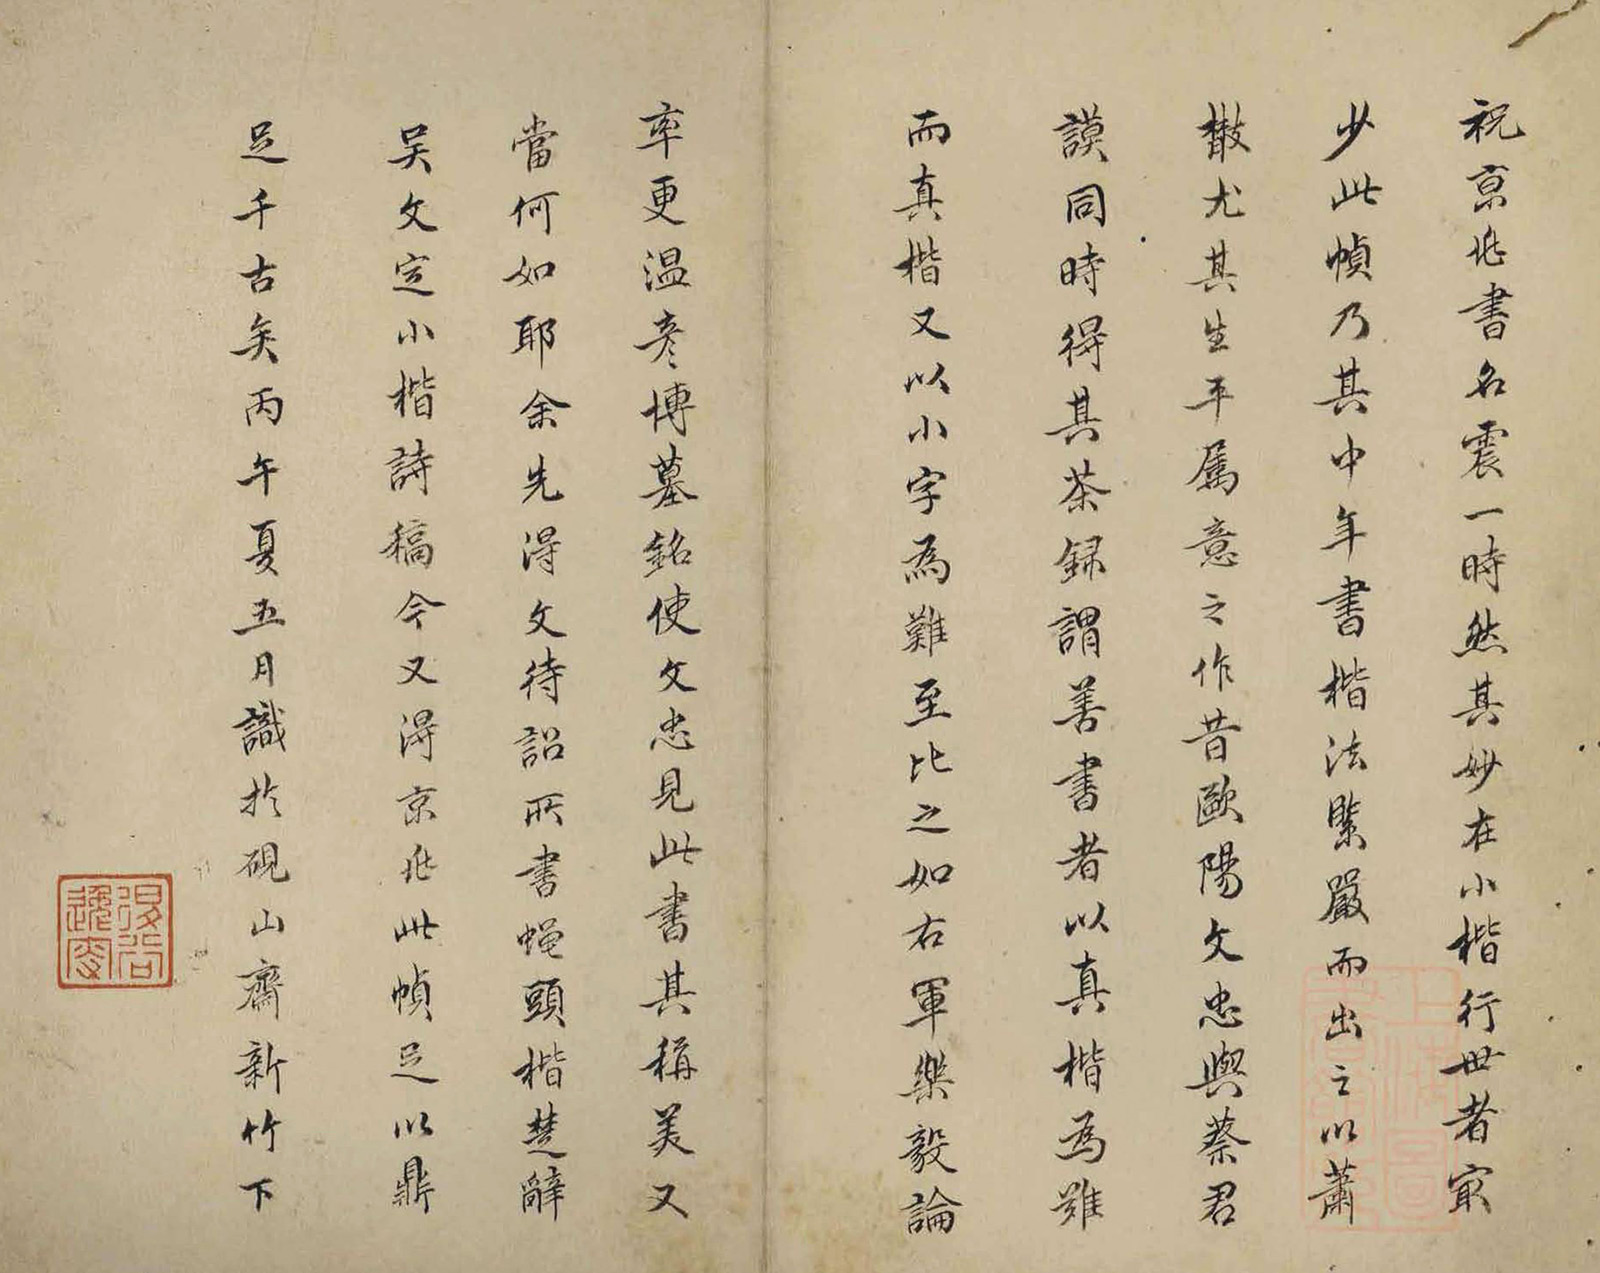 祝京兆書名震一時然其妙在小楷行世者寂
少此幀乃其中年書楷法緊嚴而出之以蕭
散尤其生平屬意之作昔歐陽文忠與蔡君
謨同時得其茶録謂善書者以真楷為難
而真楷又以小字為難至比之如右軍樂毅論
率更温彦博墓銘使文忠見此書其稱美又
當何如耶余先淂文待詔所書蝇頭楷楚辭
吴文定小楷詩稿今又淂京兆此幀足以鼎
足千古矣丙午夏五月識於硯山齋新竹下